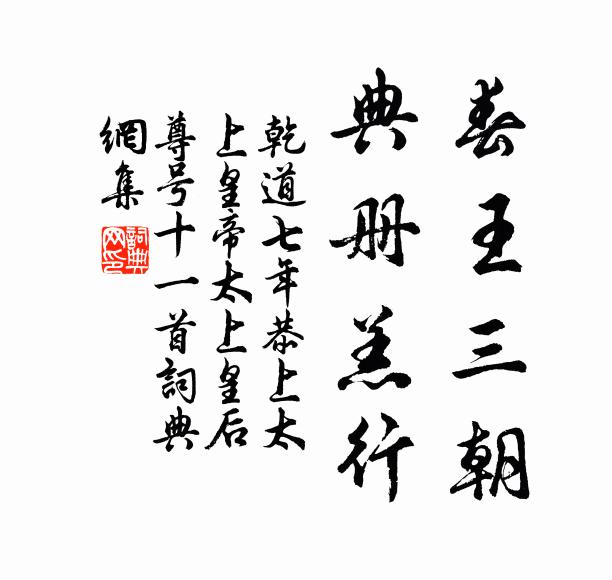 春王三朝
典册羔行
乾道七年恭上太
上皇帝太上皇后
尊号十一首詞典
網集
詞典網印